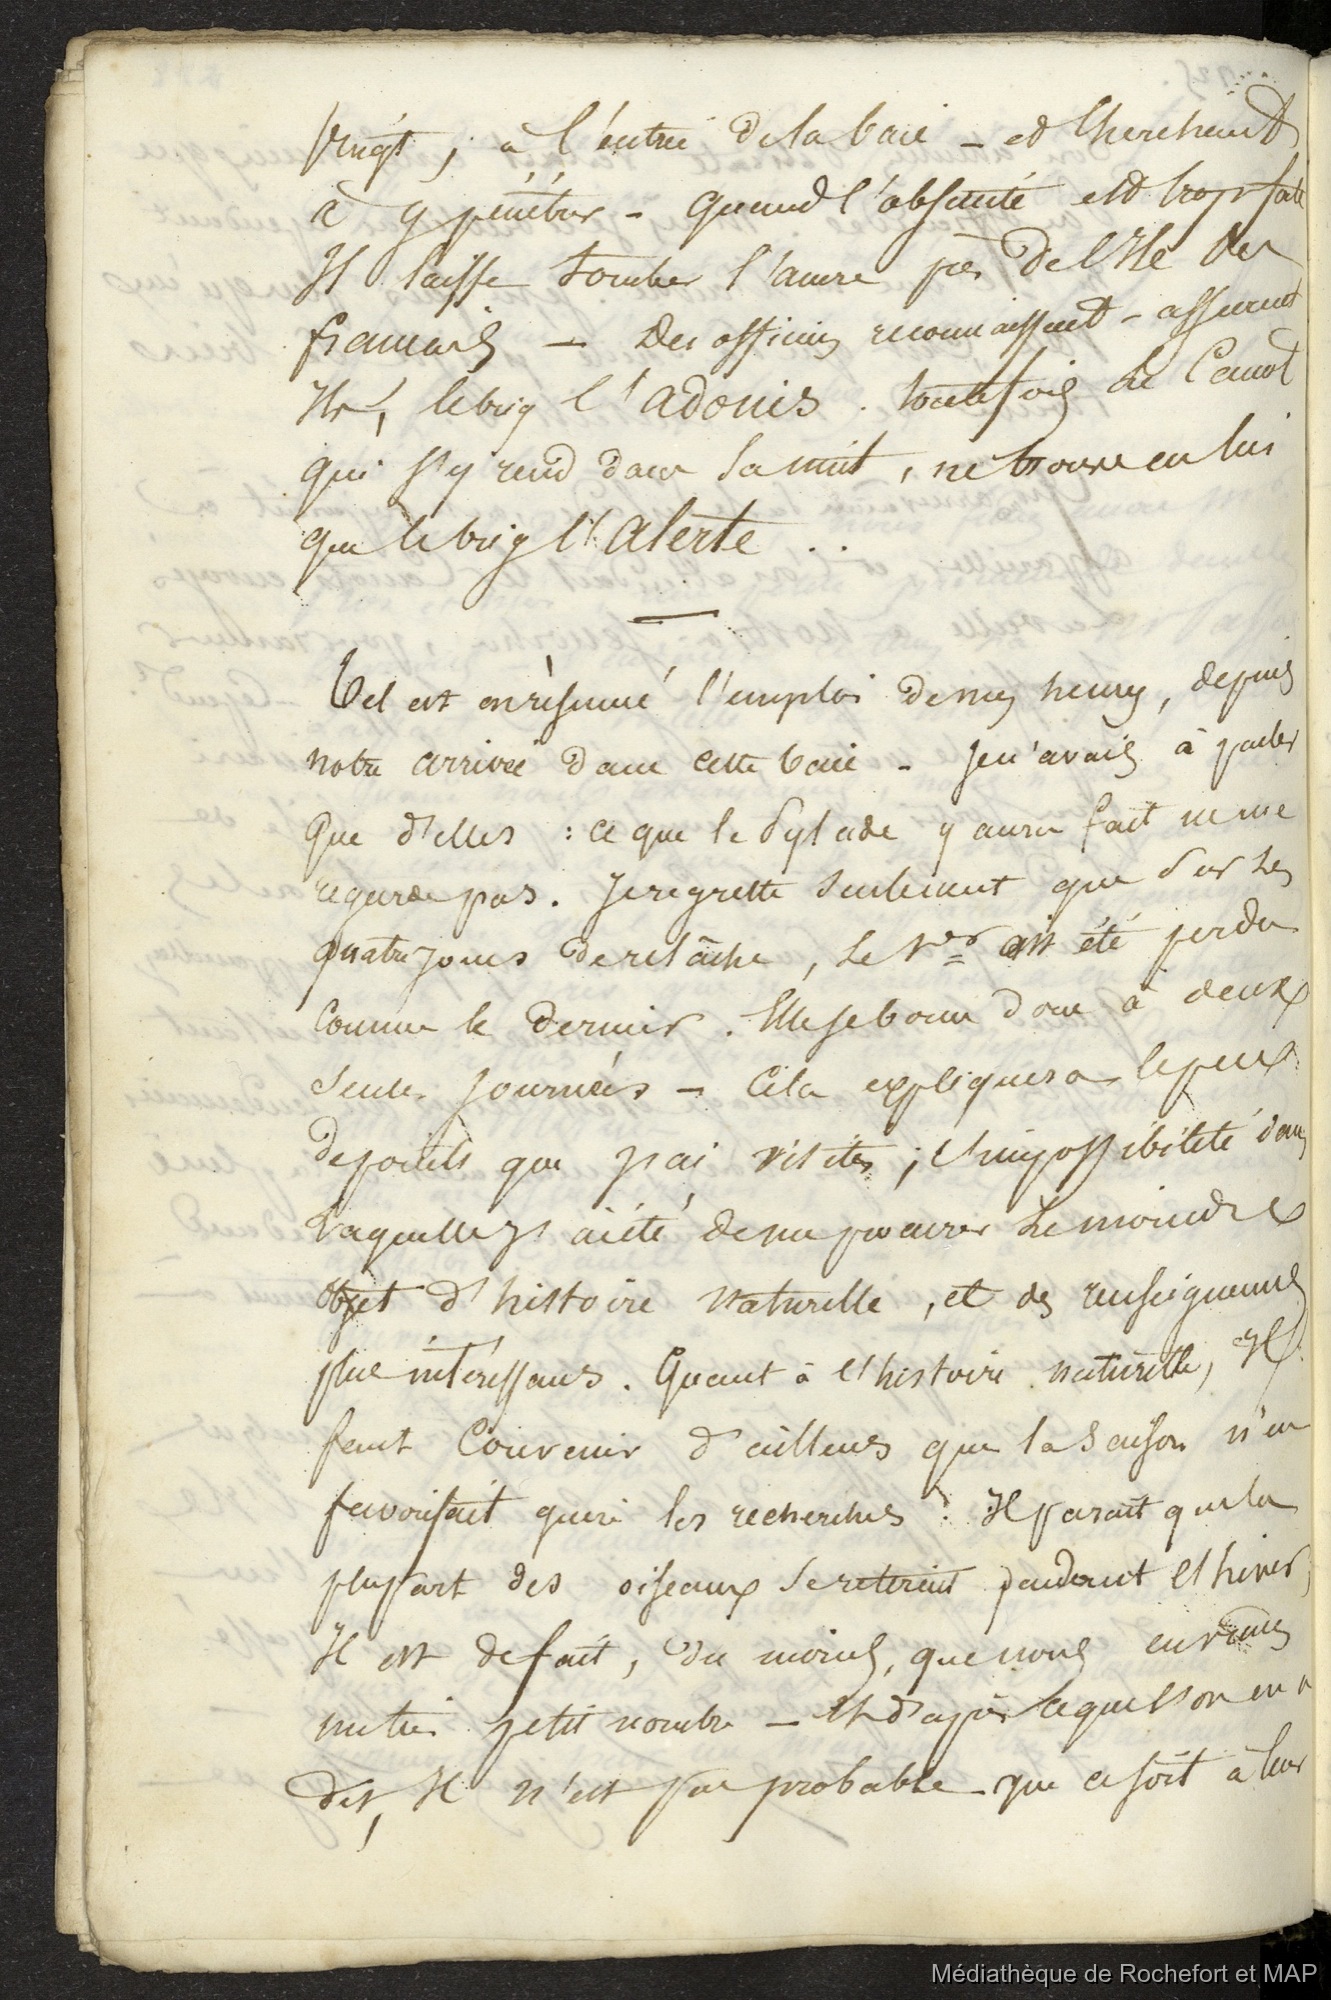 Vingt, à l'entrée de la baie – et cherchant
à y pénétrer – quand l'obscurité est trop forte
Il laisse tomber l'ancre près de l'Ile des
français – Des officiers reconnaissent – assurent
Ils, le brig l'Adonis. toutefois le Canot
qui s'y rend dans la nuit, ne trouve en lui
que le brig l'Alerte ..
Tel est en résumé l'emploi de mes heures, depuis
notre arrivée dans cette baie – Je n'avais à parler
que d'elles : ce que le Pylade y aura fait ne me
regarde pas. Je regrette seulement que sur les
quatre jours de relâche, le 1er ait été perdu
comme le dernier. Elle se borne donc à deux
seules journées – Cela expliquera le peu
de points que j'ai visités ; l'impossibilité dans
laquelle j'ai été de me procurer le moindre
objet d'histoire naturelle, et des renseignemens
plus intéressans. Quant à l'histoire naturelle, Il
faut Convenir d'ailleurs que la Saison n'en
favorisait guère les recherches. Il parait que la
plupart des oiseaux se retirent pendant l'hiver,
Il est de fait, du moins, que nous en vîmes
un très petit nombre – Et d'après ce que l'on en a
dit, Il n'est pas probable que ce soit à leur
Médiathèque de Rochefort et MAP